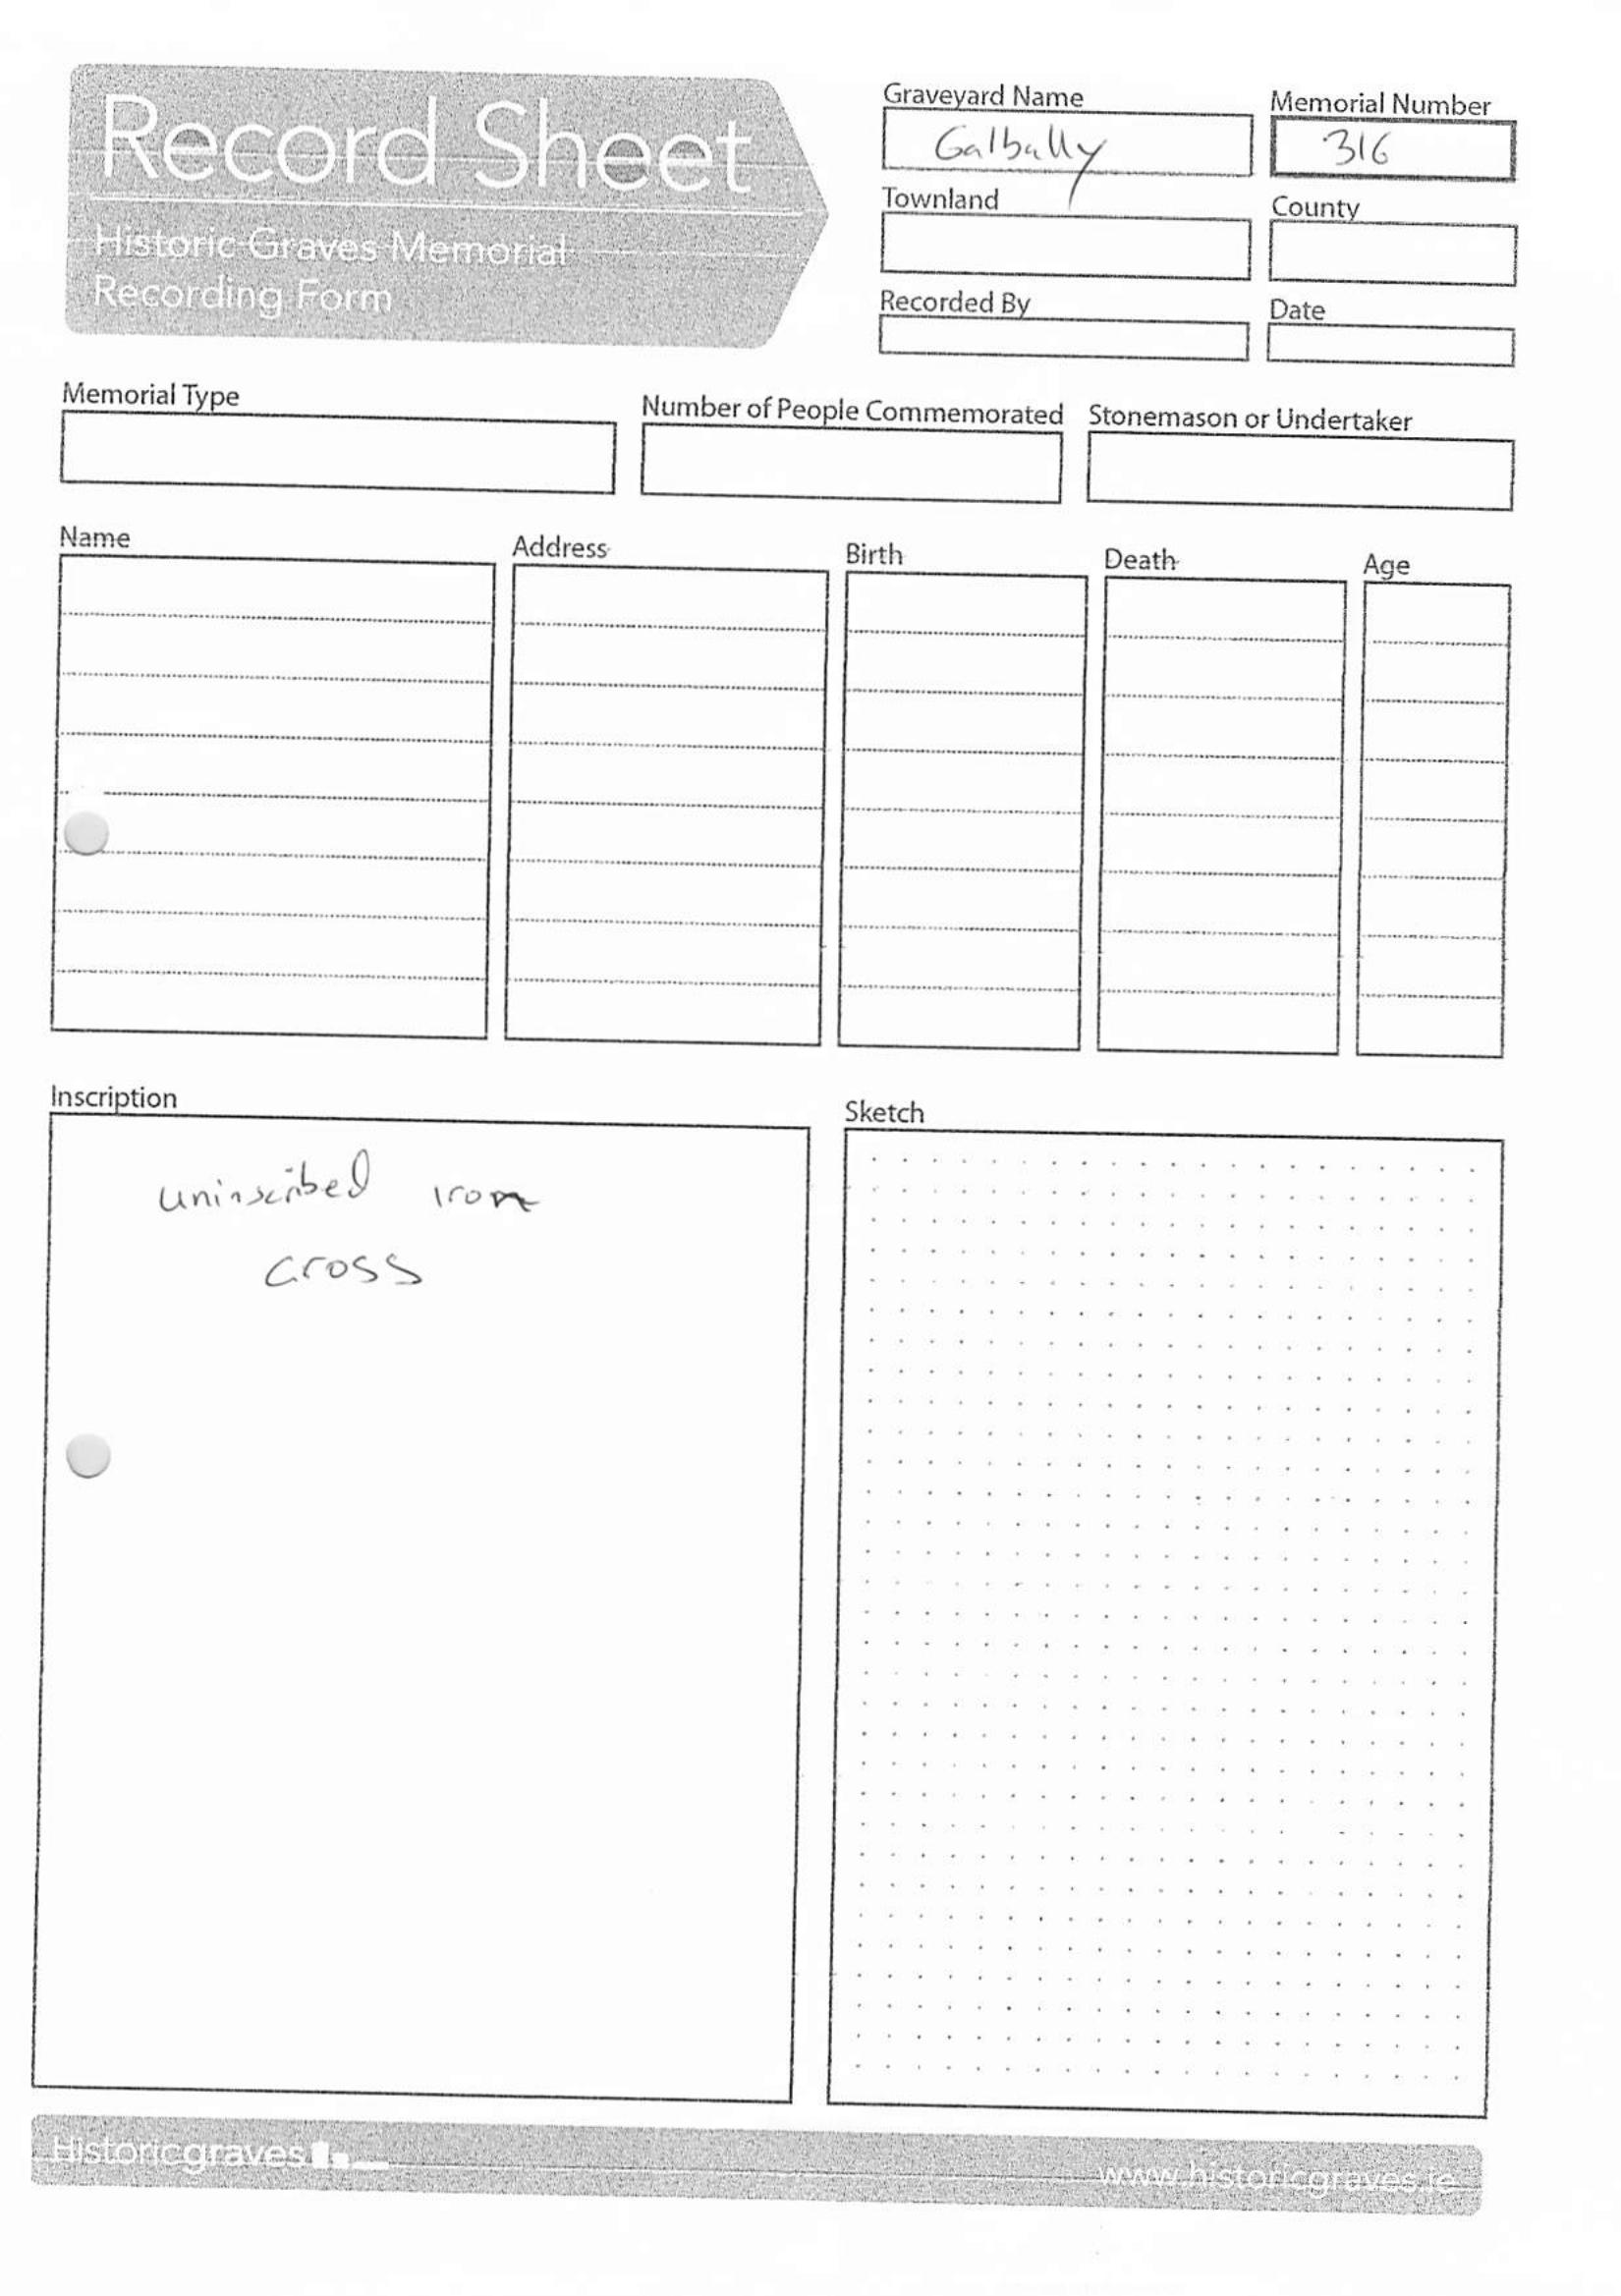 Record Sheet
Historic Graves Memorial
Recording Form
Graveyard Name
Galbally
Memorial Number
316
Townland
County
Recorded By
Date
Memorial Type
Number of People Commemorated
Stonemason or Undertaker
Name
Address
Birth
Death
Age
Inscription
uninscribed iron
cross
Sketch
Historicgraves
www.historicgraves.ie